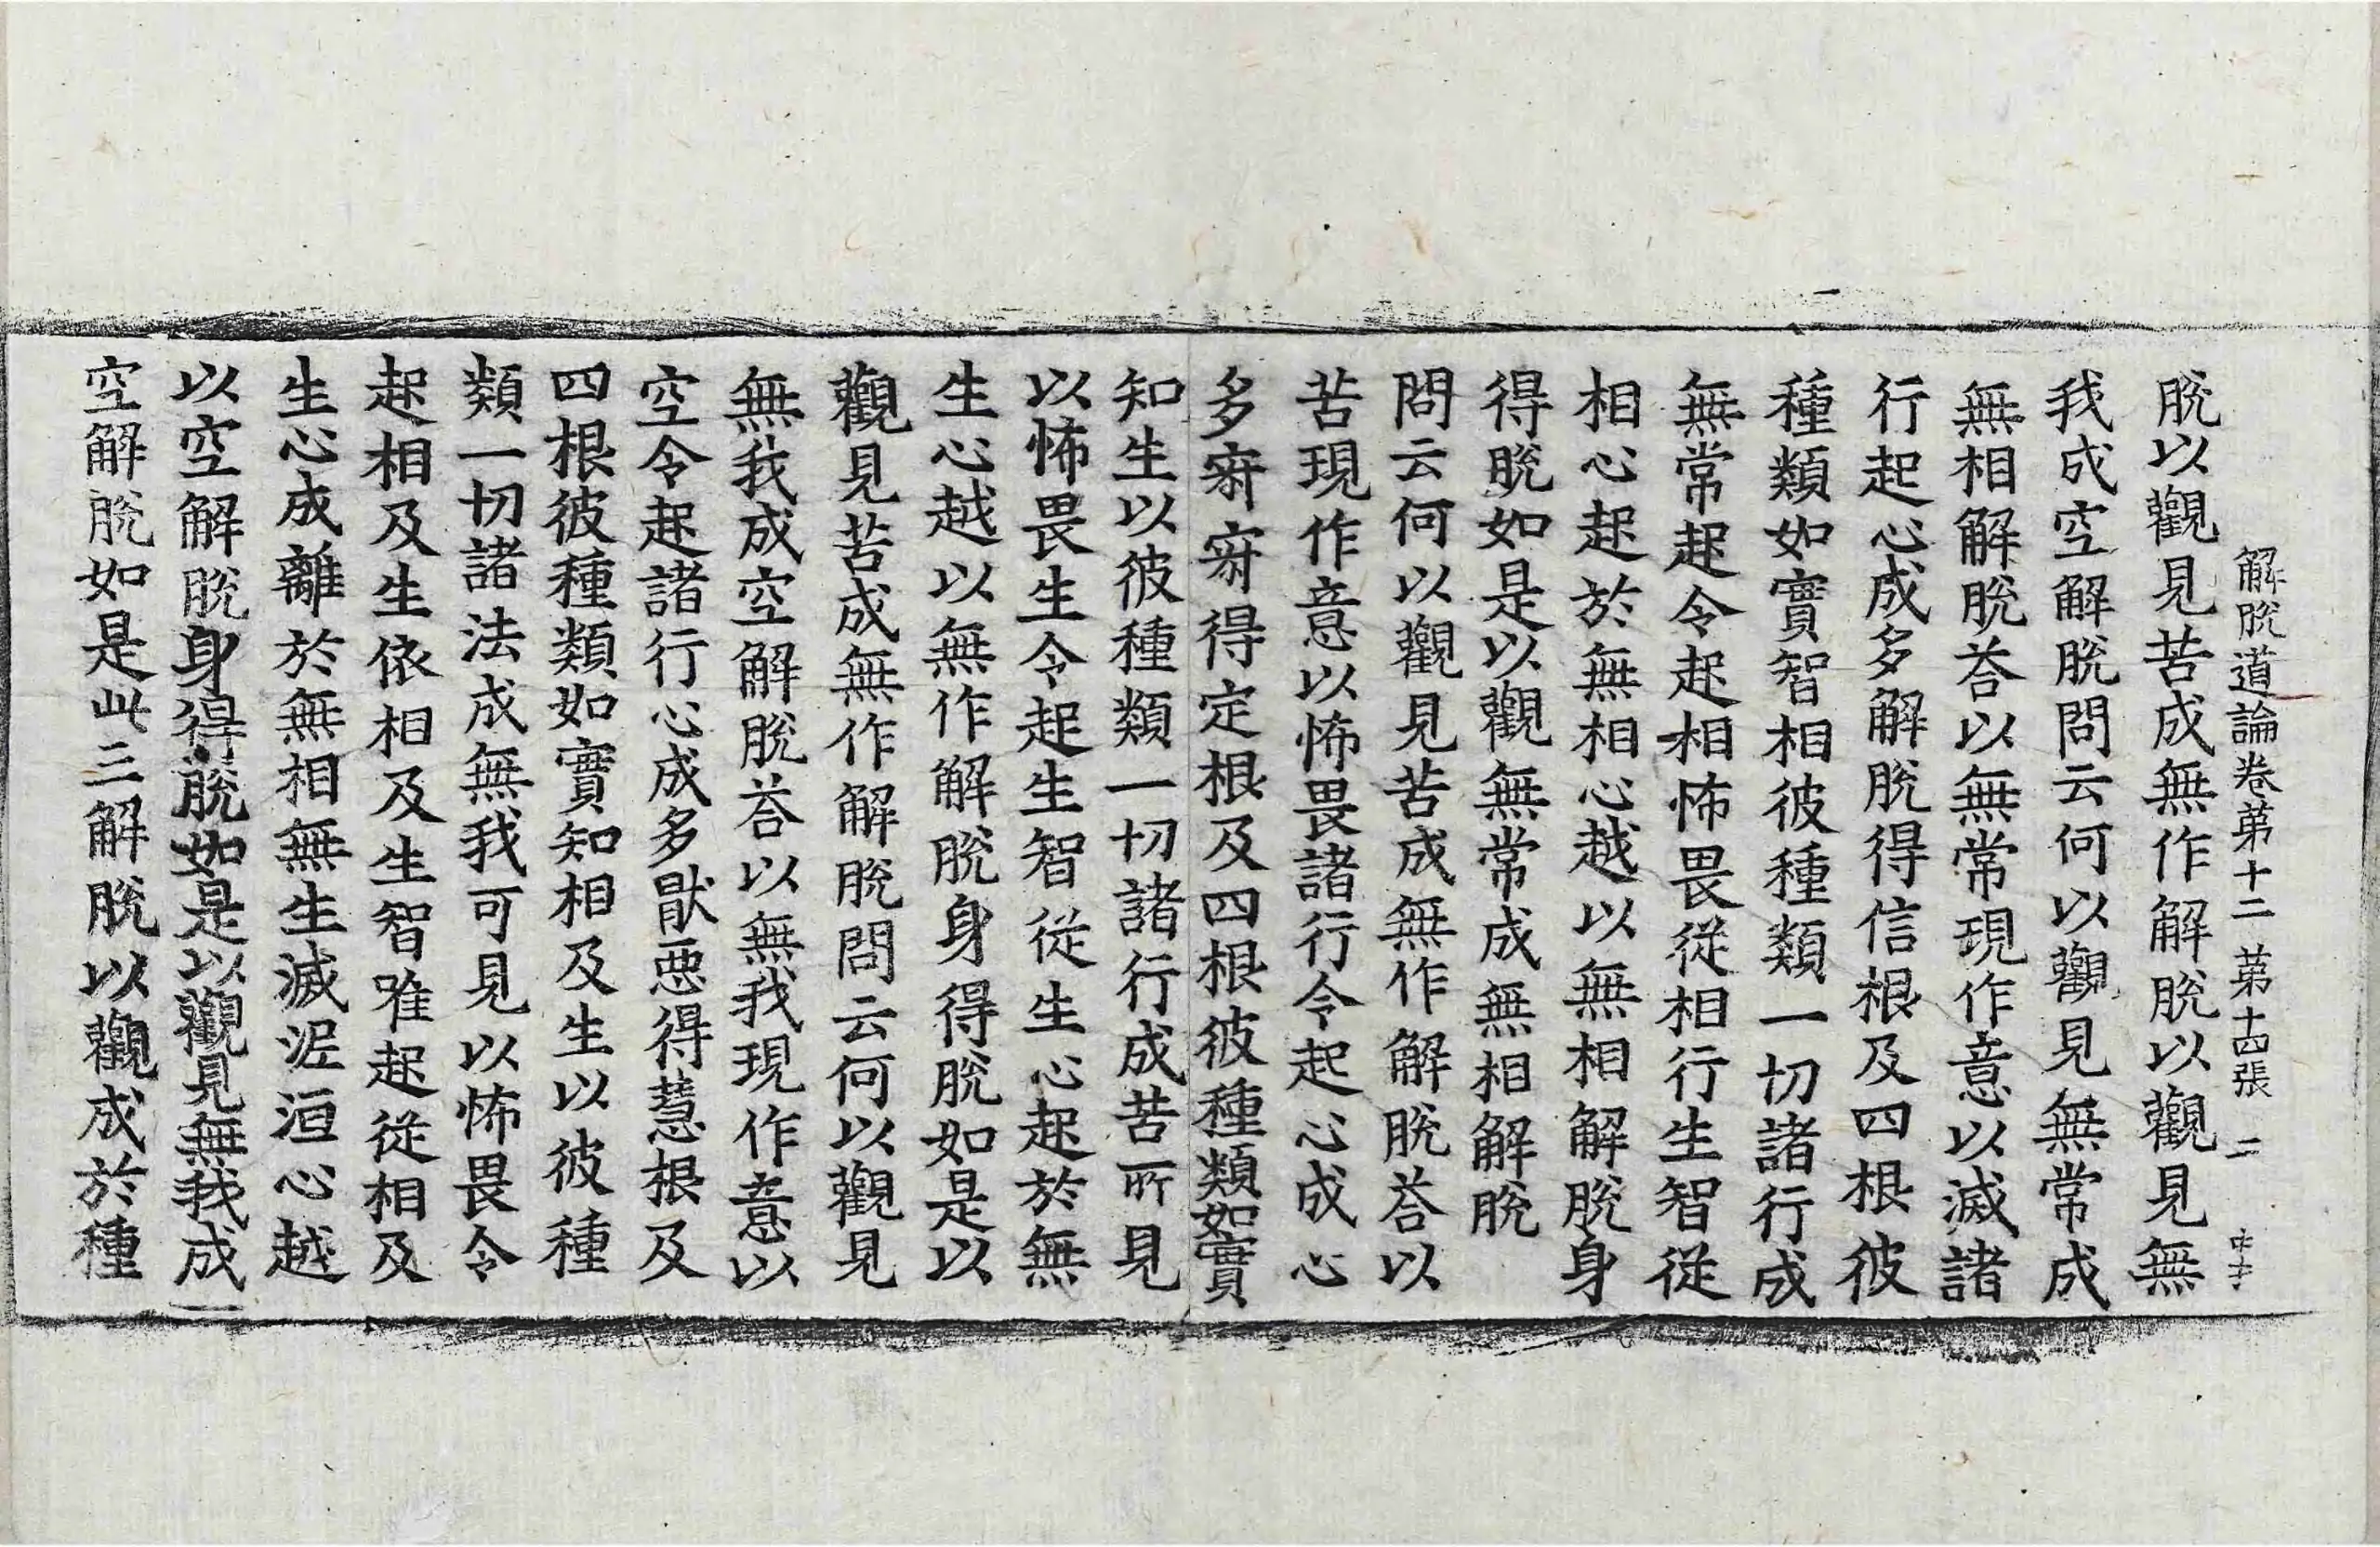 解脫道論卷第十二　第十四張　二
脫以觀見苦成無作解脫以觀見無
我成空解脫問云何以觀見無常成
無相解脫荅以無常現作意以滅諸
行起心成多解脫得信根及四根彼
種類如實智相彼種類一切諸行成
無常起令起相怖畏從相行生智從
相心起於無相心越以無相解脫身
得脫如是以觀無常成無相解脫
問云何以觀見苦成無作解脫荅以
苦現作意以怖畏諸行令起心成心
多𡨋𡨋得定根及四根彼種類如實
知生以彼種類一切諸行成苦所見
以怖畏生令起生智從生心起於無
生心越以無作解脫身得脫如是以
觀見苦成無作解脫問云何以觀見
無我成空解脫荅以無我現作意以
空令起諸行心成多猒惡得慧根及
四根彼種類如實知相及生以彼種
類一切諸法成無我可見以怖畏令
起相及生依相及生智唯起從相及
生心成離於無相無生滅泥洹心越
以空解脫身得脫如是以觀見無我成
空解脫如是此三解脫以觀成於種